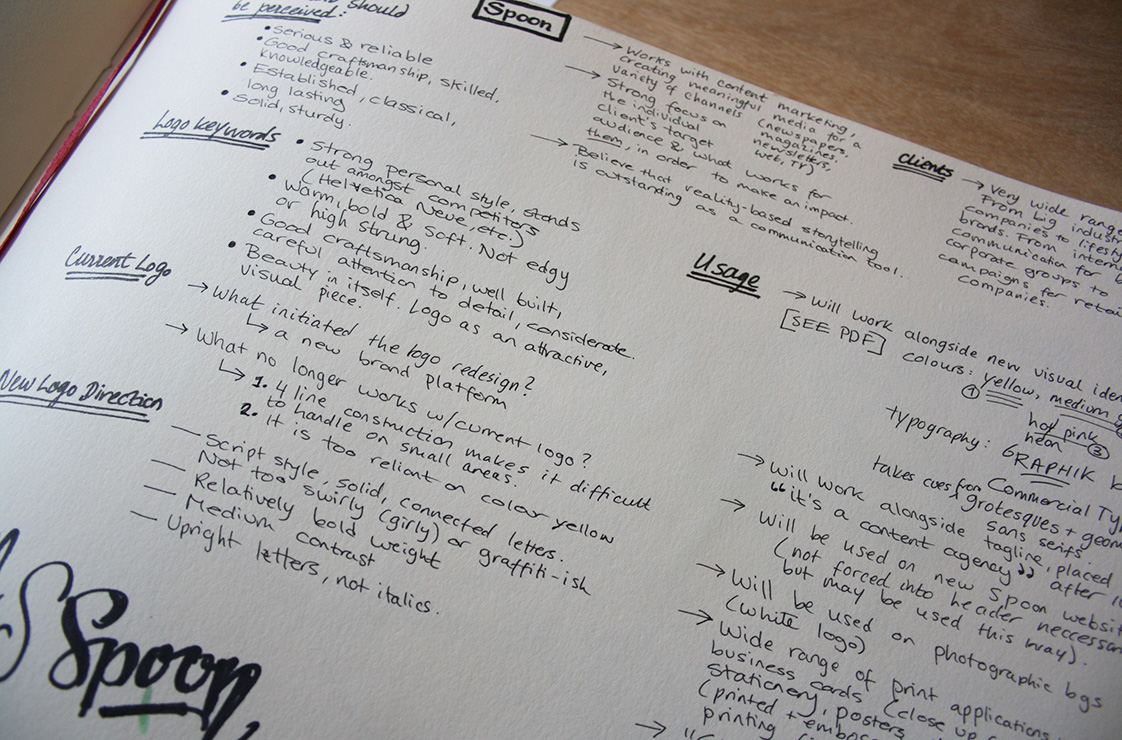 should
be perceived:
• Serious & reliable
• Good craftsmanship, skilled,
knowledgeable.
• Established, classical,
long lasting
• Solid, sturdy.
Logo keywords
• Strong personal style, stands
out amongst competitors
(Helvetica Neue, etc.)
• Warm, bold & soft. Not edgy
or high strung.
• Good craftsmanship, well built,
careful attention to detail, considerate.
• Beauty in itself. Logo as an attractive,
visual piece.
Current Logo
→ What initiated the logo redesign?
↳ a new brand platform
→ What no longer works w/current logo?
↳ 1. 4 line construction makes it difficult
to handle on small areas.
2. It is too reliant on colour yellow
New Logo Direction
— Script style, solid, connected letters.
— Not too swirly (girly) or graffiti-ish
— Relatively bold weight
— Medium contrast
— Upright letters, not italics.
S Spoon
Spoon
→ Works with content marketing,
creating meaningful media for a
variety of channels (newspapers,
magazines,
newsletters,
web, TV)
→ Strong focus on
the individual
client's target
audience & what works for
them, in order to make an impact.
→ Believe that reality-based storytelling
is outstanding as a communication tool.
Clients
→ Very wide range
From big
companies to
brands. From
communication for
corporate groups to
campaigns for
companies.
Usage
→ Will work alongside new visual
[SEE PDF] colours: yellow, medium
① hot pink ③
neon
typography: GRAPHIK
takes cues from Commercial
grotesques +
sans serifs
→ Will work alongside tagline, placed
“it's a content agency” after
→ Will be used on new Spoon
(not forced into header
but may be used this way).
→ Will be used on photographic bgs
(white logo)
→ Wide range of print applications
business cards (close up
stationery, posters
(printed +
printing
→